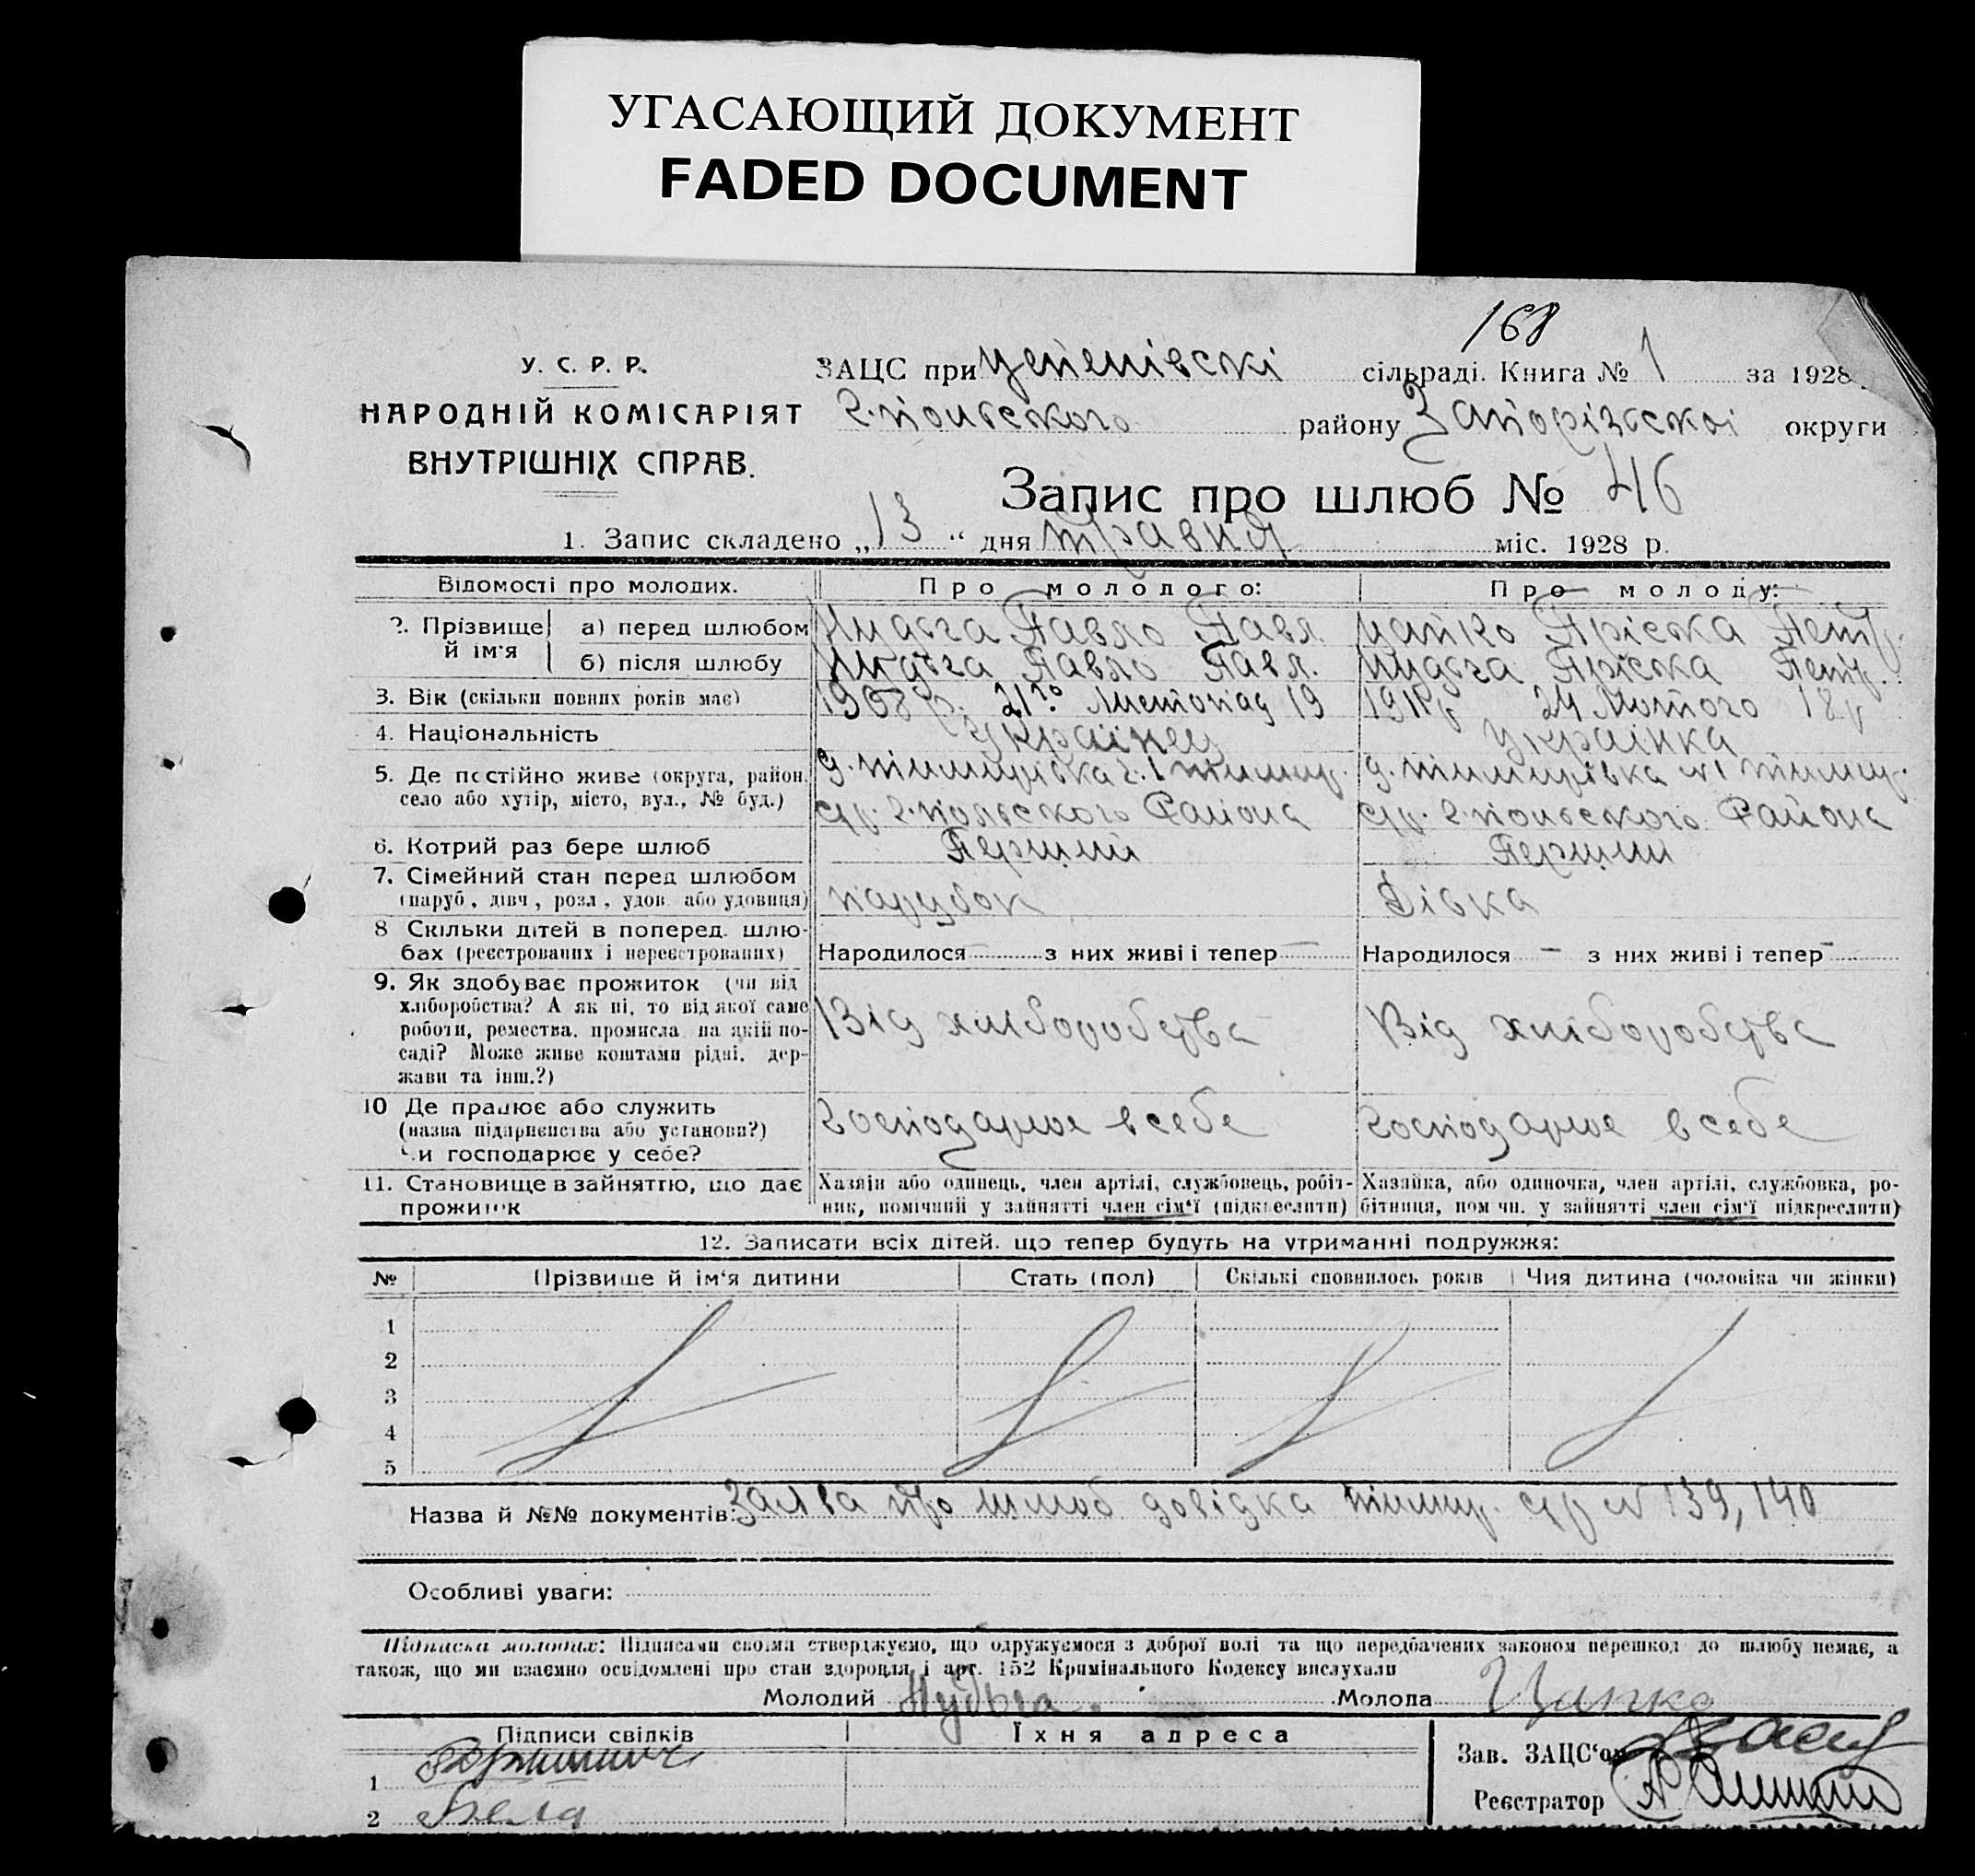 УГАСАЮЩИЙ ДОКУМЕНТ
FADED DOCUMENT
168
У. С. Р. Р.
НАРОДНІЙ КОМІСАРІЯТ
ВНУТРІШНІХ СПРАВ.
ЗАЦС при сільраді. Книга № 1 за 1928
Г.польского району Запорізської округи
Запис про шлюб № 46
1. Запис складено „13“ дня травня міс. 1928 р.
Відомості про молодих. Про молодого: Про молоду:
2. Прізвище й ім'я
а) перед шлюбом Нудьга Павло Павл. Цапко Пріська Петр.
б) після шлюбу Нудьга Павло Павл. Нудьга Пріська Петр.
3. Вік (скільки повних років має) 1908 р. 21го Листопад 19 24 Лютого 18 р
4. Національність Українец Українка
5. Де постійно живе (округа, район, село або хутір, місто, вул., № буд.)
с/р. Г.польского Района с/р. Г.польского Района
6. Котрий раз бере шлюб Перший Перший
7. Сімейний стан перед шлюбом (паруб., дівч., розл., удов. або удовиця) парубок Дівка
8 Скільки дітей в поперед. шлюбах (реєстрованих і нереєстрованих) Народилося — з них живі і тепер — Народилося — з них живі і тепер —
9. Як здобуває прожиток (чи від
хліборобства? А як ні, то від якої саме
роботи, ремества, промисла, на якій по-
саді? Може живе коштами рідні, дер-
жави та інш.?)
Від хліборобства Від хліборобства
10 Де працює або служить
(назва підприємства або установи?)
Чи господарює у себе?
Господарює в себе Господарює в себе
11. Становище в зайняттю, що дає прожиток
Хазяїн або одинець, член артілі, службовець, робіт-
ник, помічний у зайнятті член сім'ї (підкреслити)
Хазяйка, або одиночка, член артілі, службовка, ро-
бітниця, пом чн. у зайнятті член сім'ї підкреслити)
12. Записати всіх дітей, що тепер будуть на утриманні подружжя:
№ Прізвище й ім'я дитини Стать (пол) Скількі сповнилось років Чия дитина (чоловіка чи жінки)
1
2
3
4
5
Назва й №№ документів: Заява про шлюб довідка с/р № 139, 140
Особливі уваги:
Підписка молодих: Підписами своїми стверджуємо, що одружуємося з доброї волі та що передбачених законом перешкод до шлюбу немає, а
також, що ми взаємно освідомлені про стан здоровля і арт. 152 Кримінального Кодексу вислухали
Молодий Нудьга. Молода Цапко
Підписи свілків Їхня адреса
1
2
Зав. ЗАЦС'ом
Реєстратор